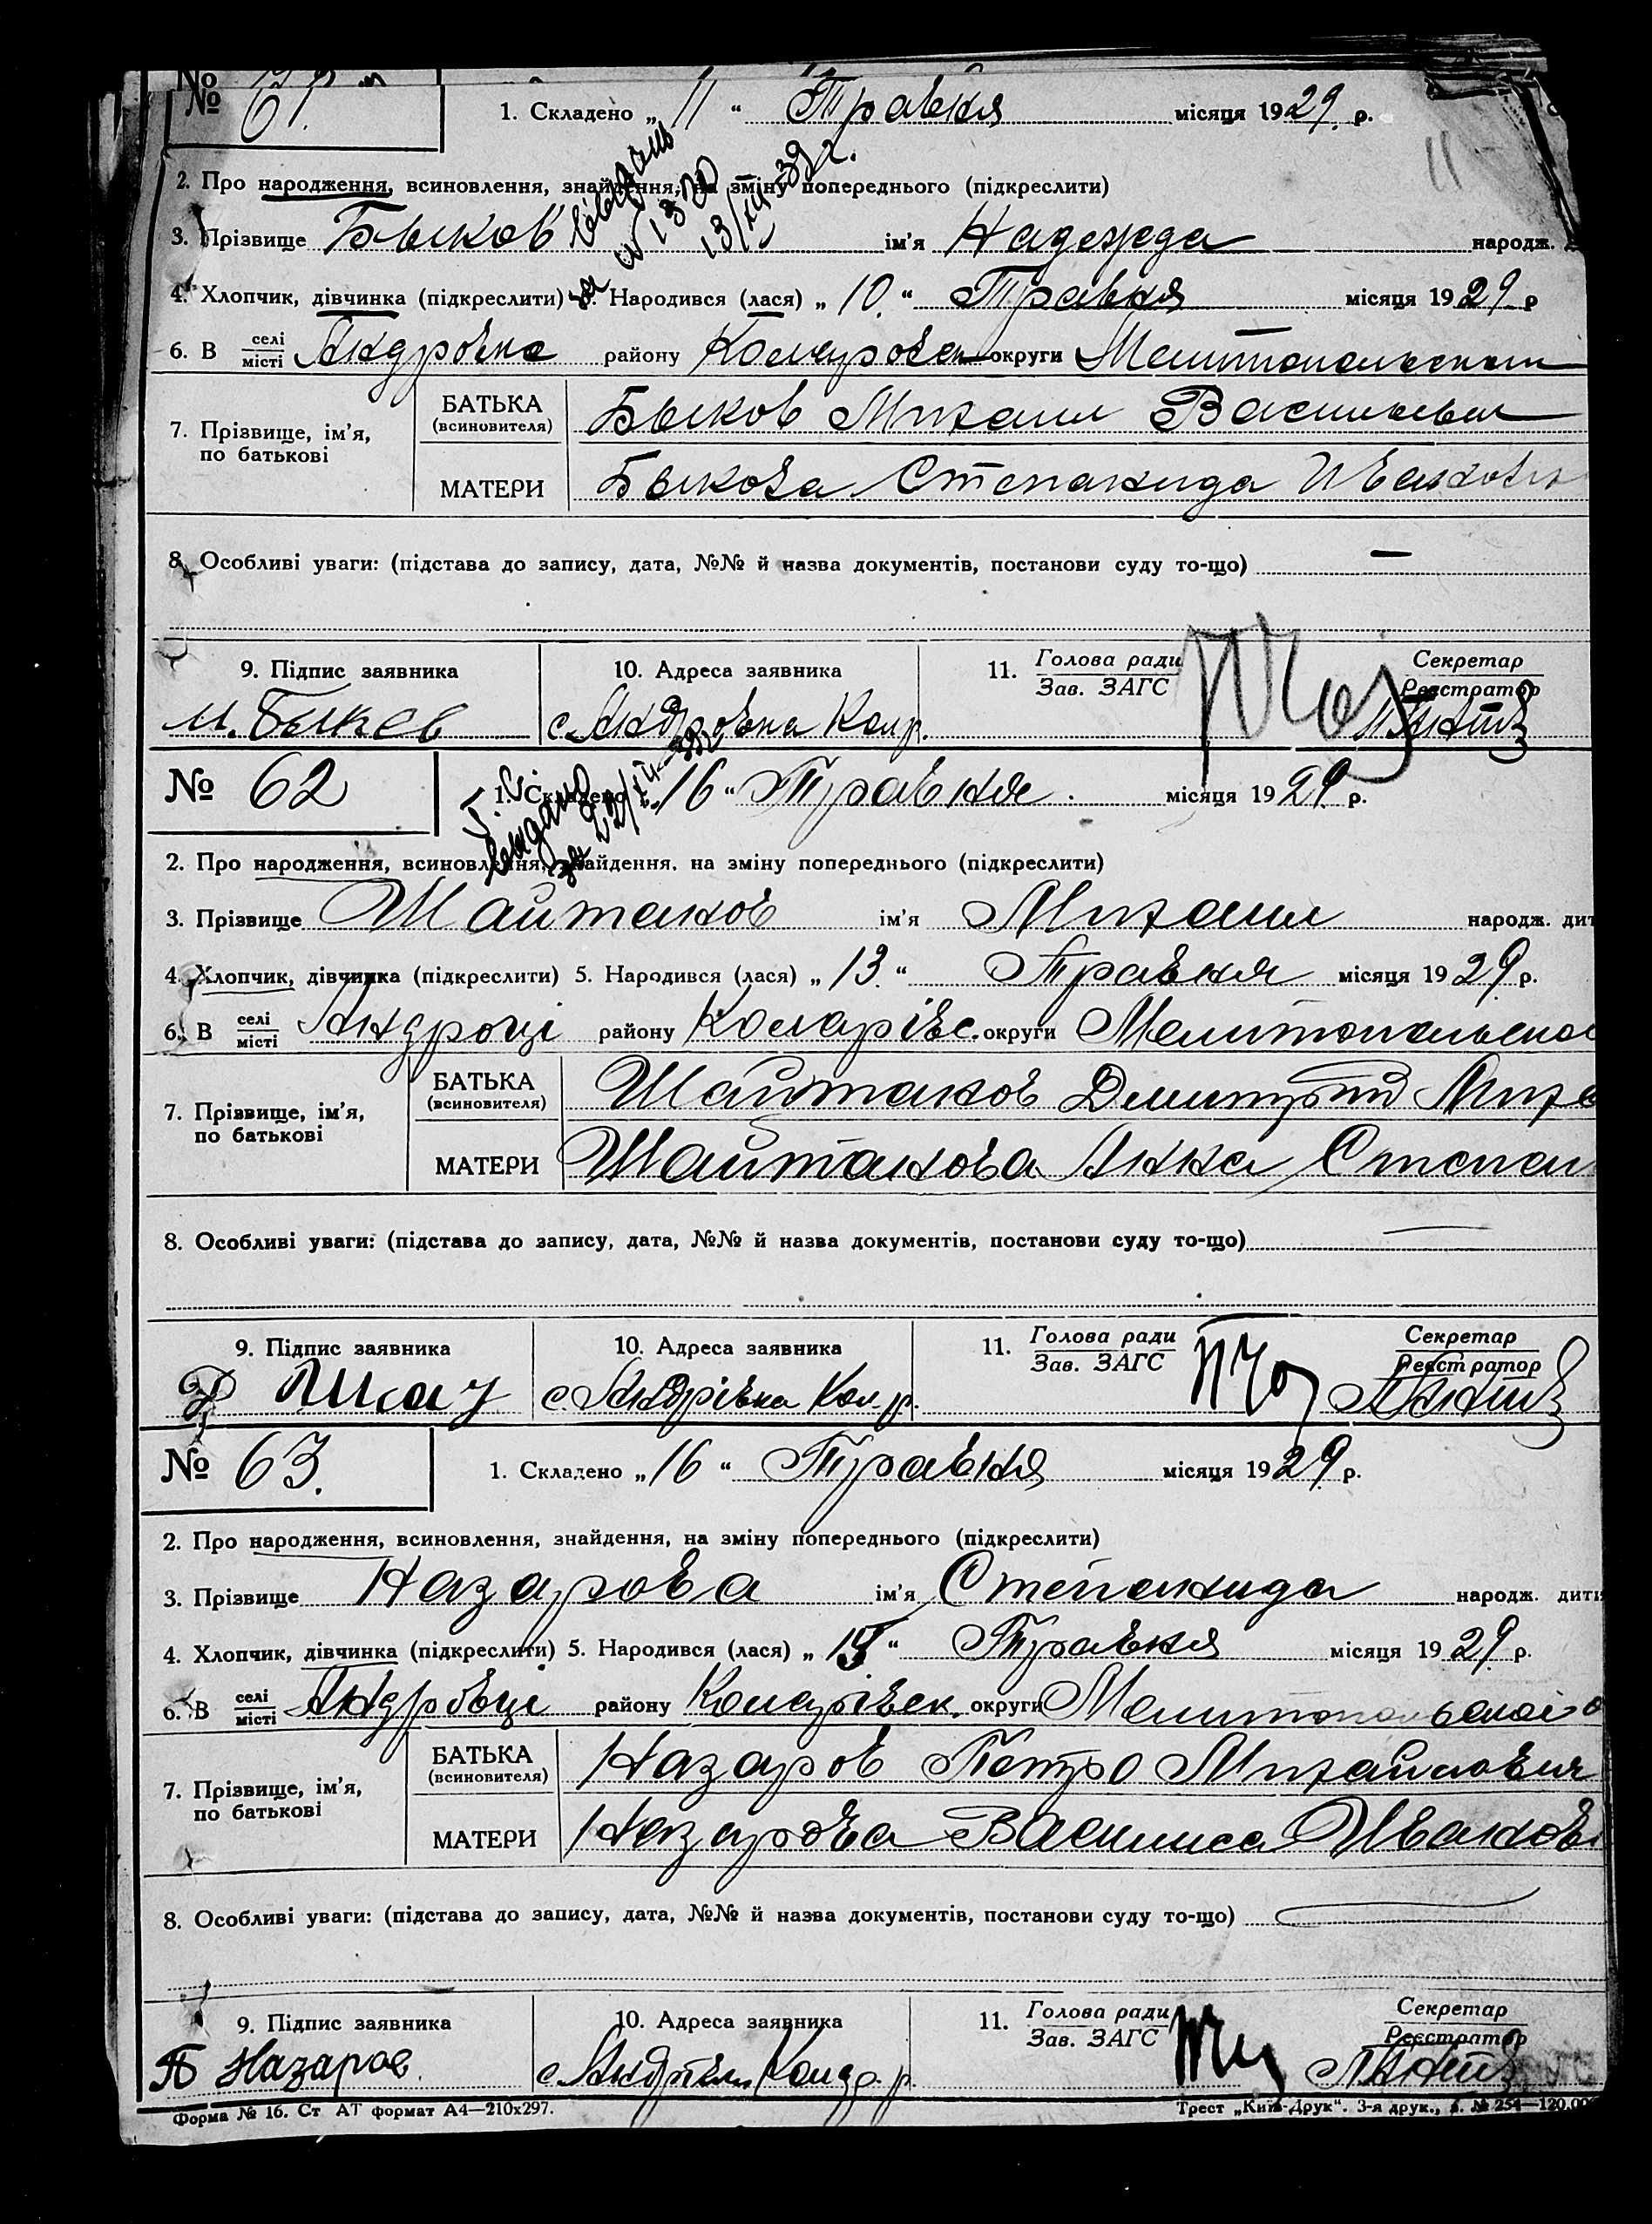 № 61.
1. Складено „11“ Травня місяця 1929 р.
11
2. Про народження, всиновлення, знайдення, на зміну попереднього (підкреслити)
3. Прізвище Быков ім'я Надежда народж.
4. Хлопчик, дівчинка (підкреслити) 5. Народився (лася) „10.“ Травня місяця 1929 р
6. В селі/місті Андровка району округи
7. Прізвище, ім'я, по батькові
БАТЬКА (всиновителя) Быков Михаил
МАТЕРИ Быкова Степанида
8. Особливі уваги: (підстава до запису, дата, №№ й назва документів, постанови суду то-що) —
9. Підпис заявника 10. Адреса заявника 11. Голова ради/Зав. ЗАГС Секретар/Реєстратор
М. Быков с.
№ 62
1. Складено „16“ Травня місяця 1929 р.
2. Про народження, всиновлення, знайдення, на зміну попереднього (підкреслити)
3. Прізвище Шайтанов ім'я Михаил народж. дит
4. Хлопчик, дівчинка (підкреслити) 5. Народився (лася) „13.“ Травня місяця 1929 р.
6. В селі/місті району Коларівс. округи
7. Прізвище, ім'я, по батькові
БАТЬКА (всиновителя) Шайтанов Дмитрий Миха
МАТЕРИ Шайтанова Анна Степан
8. Особливі уваги: (підстава до запису, дата, №№ й назва документів, постанови суду то-що)
9. Підпис заявника 10. Адреса заявника 11. Голова ради/Зав. ЗАГС Секретар/Реєстратор
с. Андрівка Кол. р.
№ 63.
1. Складено „16“ Травня місяця 1929 р.
2. Про народження, всиновлення, знайдення, на зміну попереднього (підкреслити)
3. Прізвище Назарова ім'я Степанида народж. дити
4. Хлопчик, дівчинка (підкреслити) 5. Народився (лася) „15“ Травня місяця 1929 р.
6. В селі/місті Андровці району округи
7. Прізвище, ім'я, по батькові
БАТЬКА (всиновителя) Назаров Петро Михайлович
МАТЕРИ Назарова Василиса Иванов
8. Особливі уваги: (підстава до запису, дата, №№ й назва документів, постанови суду то-що)
9. Підпис заявника 10. Адреса заявника 11. Голова ради/Зав. ЗАГС Секретар/Реєстратор
П Назаров
Форма № 16. Ст. АТ формат А4—210х297. Трест „Київ-Друк“. 3-я друк., з. № 254—120.00